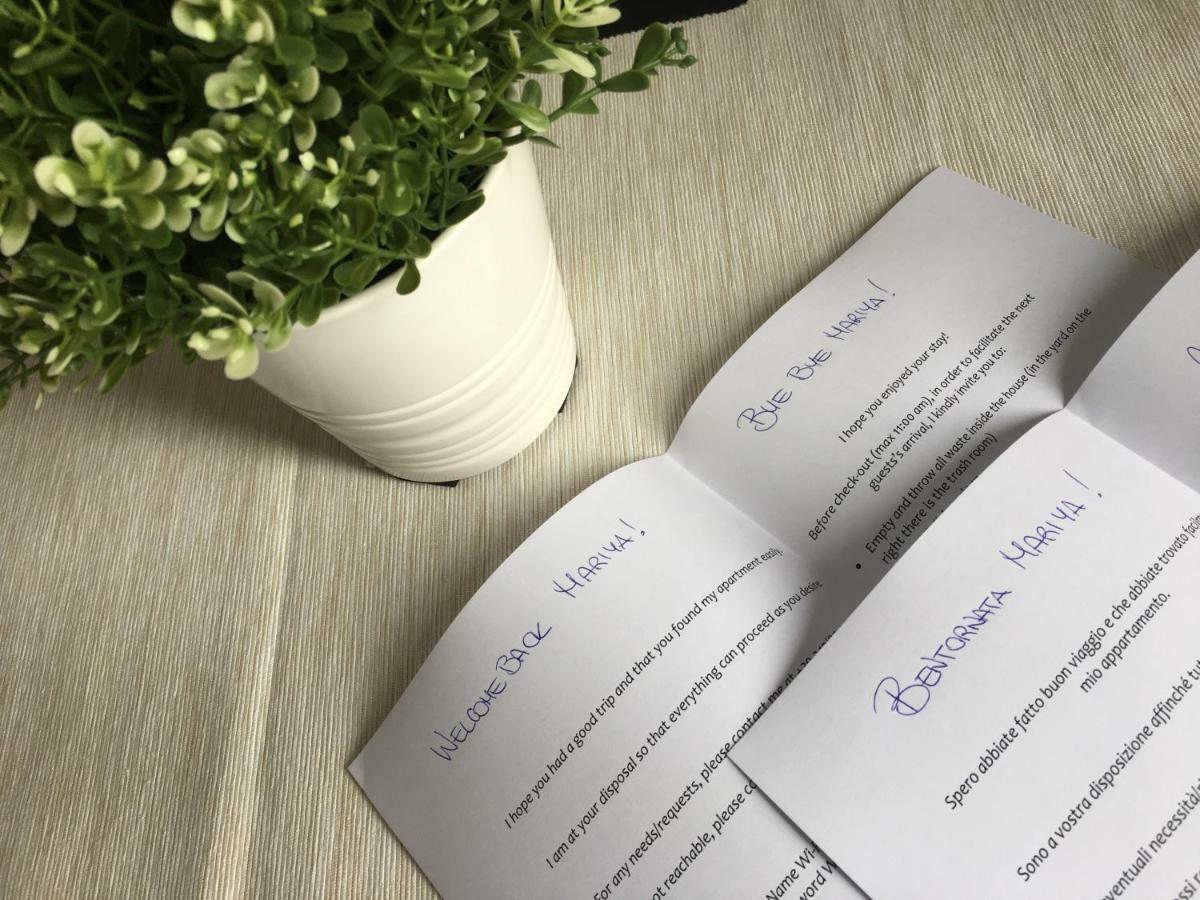 WELCOME BACK MARIYA!
I hope you had a good trip and that you found my apartment easily.
I am at your disposal so that everything can proceed as you desire
For any needs/requests, please contact me at
not reachable, please
Name Wi-
BYE BYE MARIYA!
I hope you enjoyed your stay!
Before check-out (max 11:00 am), in order to facilitate the next
guests's arrival, I kindly invite you to:
• Empty and throw all waste inside the house (in the yard on the
right there is the trash room)
BENTORNATA MARIYA!
Spero abbiate fatto buon viaggio e che abbiate trovato
mio appartamento.
Sono a vostra disposizione affinché
eventuali necessità